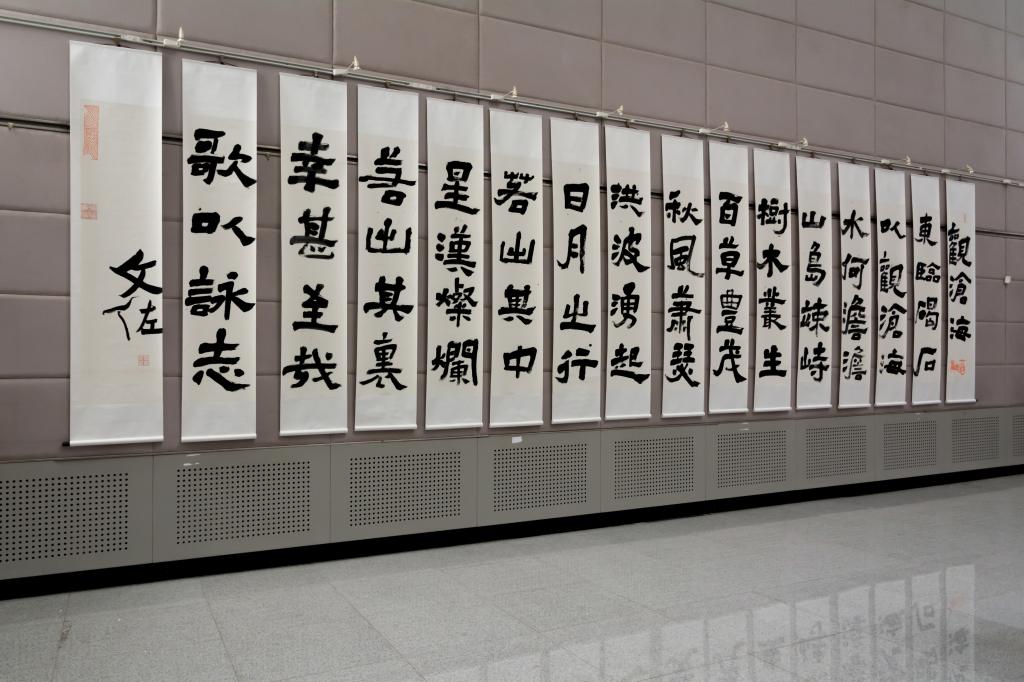 觀滄海
東臨碣石
以觀滄海
水何澹澹
山島竦峙
樹木叢生
百草豊茂
秋風蕭瑟
洪波湧起
日月之行
若出其中
星漢燦爛
若出其裏
幸甚至哉
歌以詠志
文佐